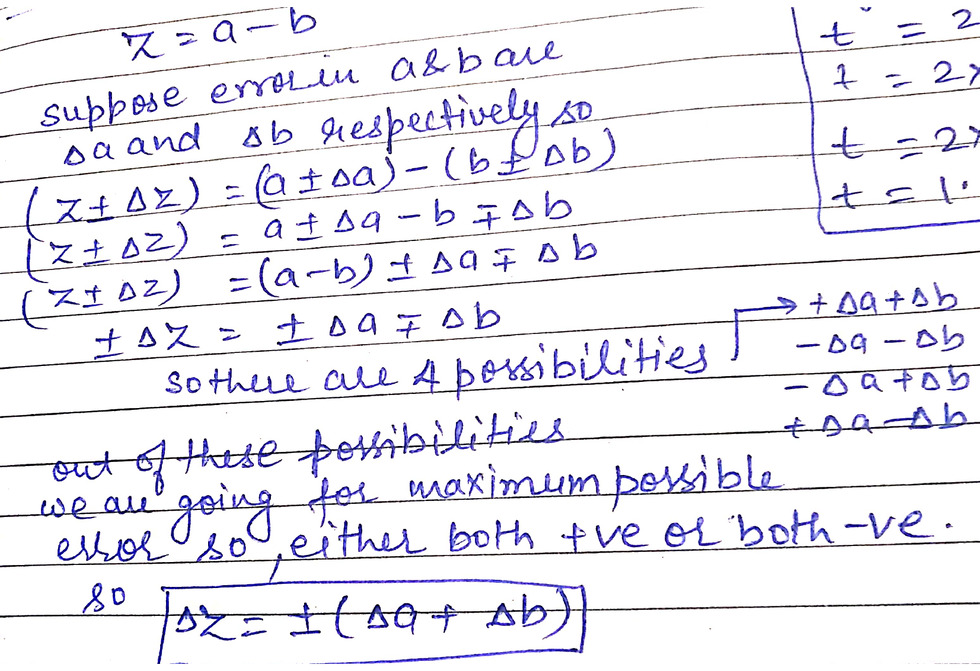 z = a - b
suppose error in a & b are
Δa and Δb respectively so
(z ± Δz) = (a ± Δa) - (b ± Δb)
(z ± Δz) = a ± Δa - b ∓ Δb
(z ± Δz) = (a-b) ± Δa ∓ Δb
± Δz = ± Δa ∓ Δb
so there are 4 possibilities
→ +Δa+Δb
-Δa -Δb
-Δa+Δb
+Δa-Δb
out of these possibilities
we are going for maximum possible
error so, either both +ve or both -ve.
so Δz = ±(Δa + Δb)
t = 2
t = 2
t = 2
t = 1.